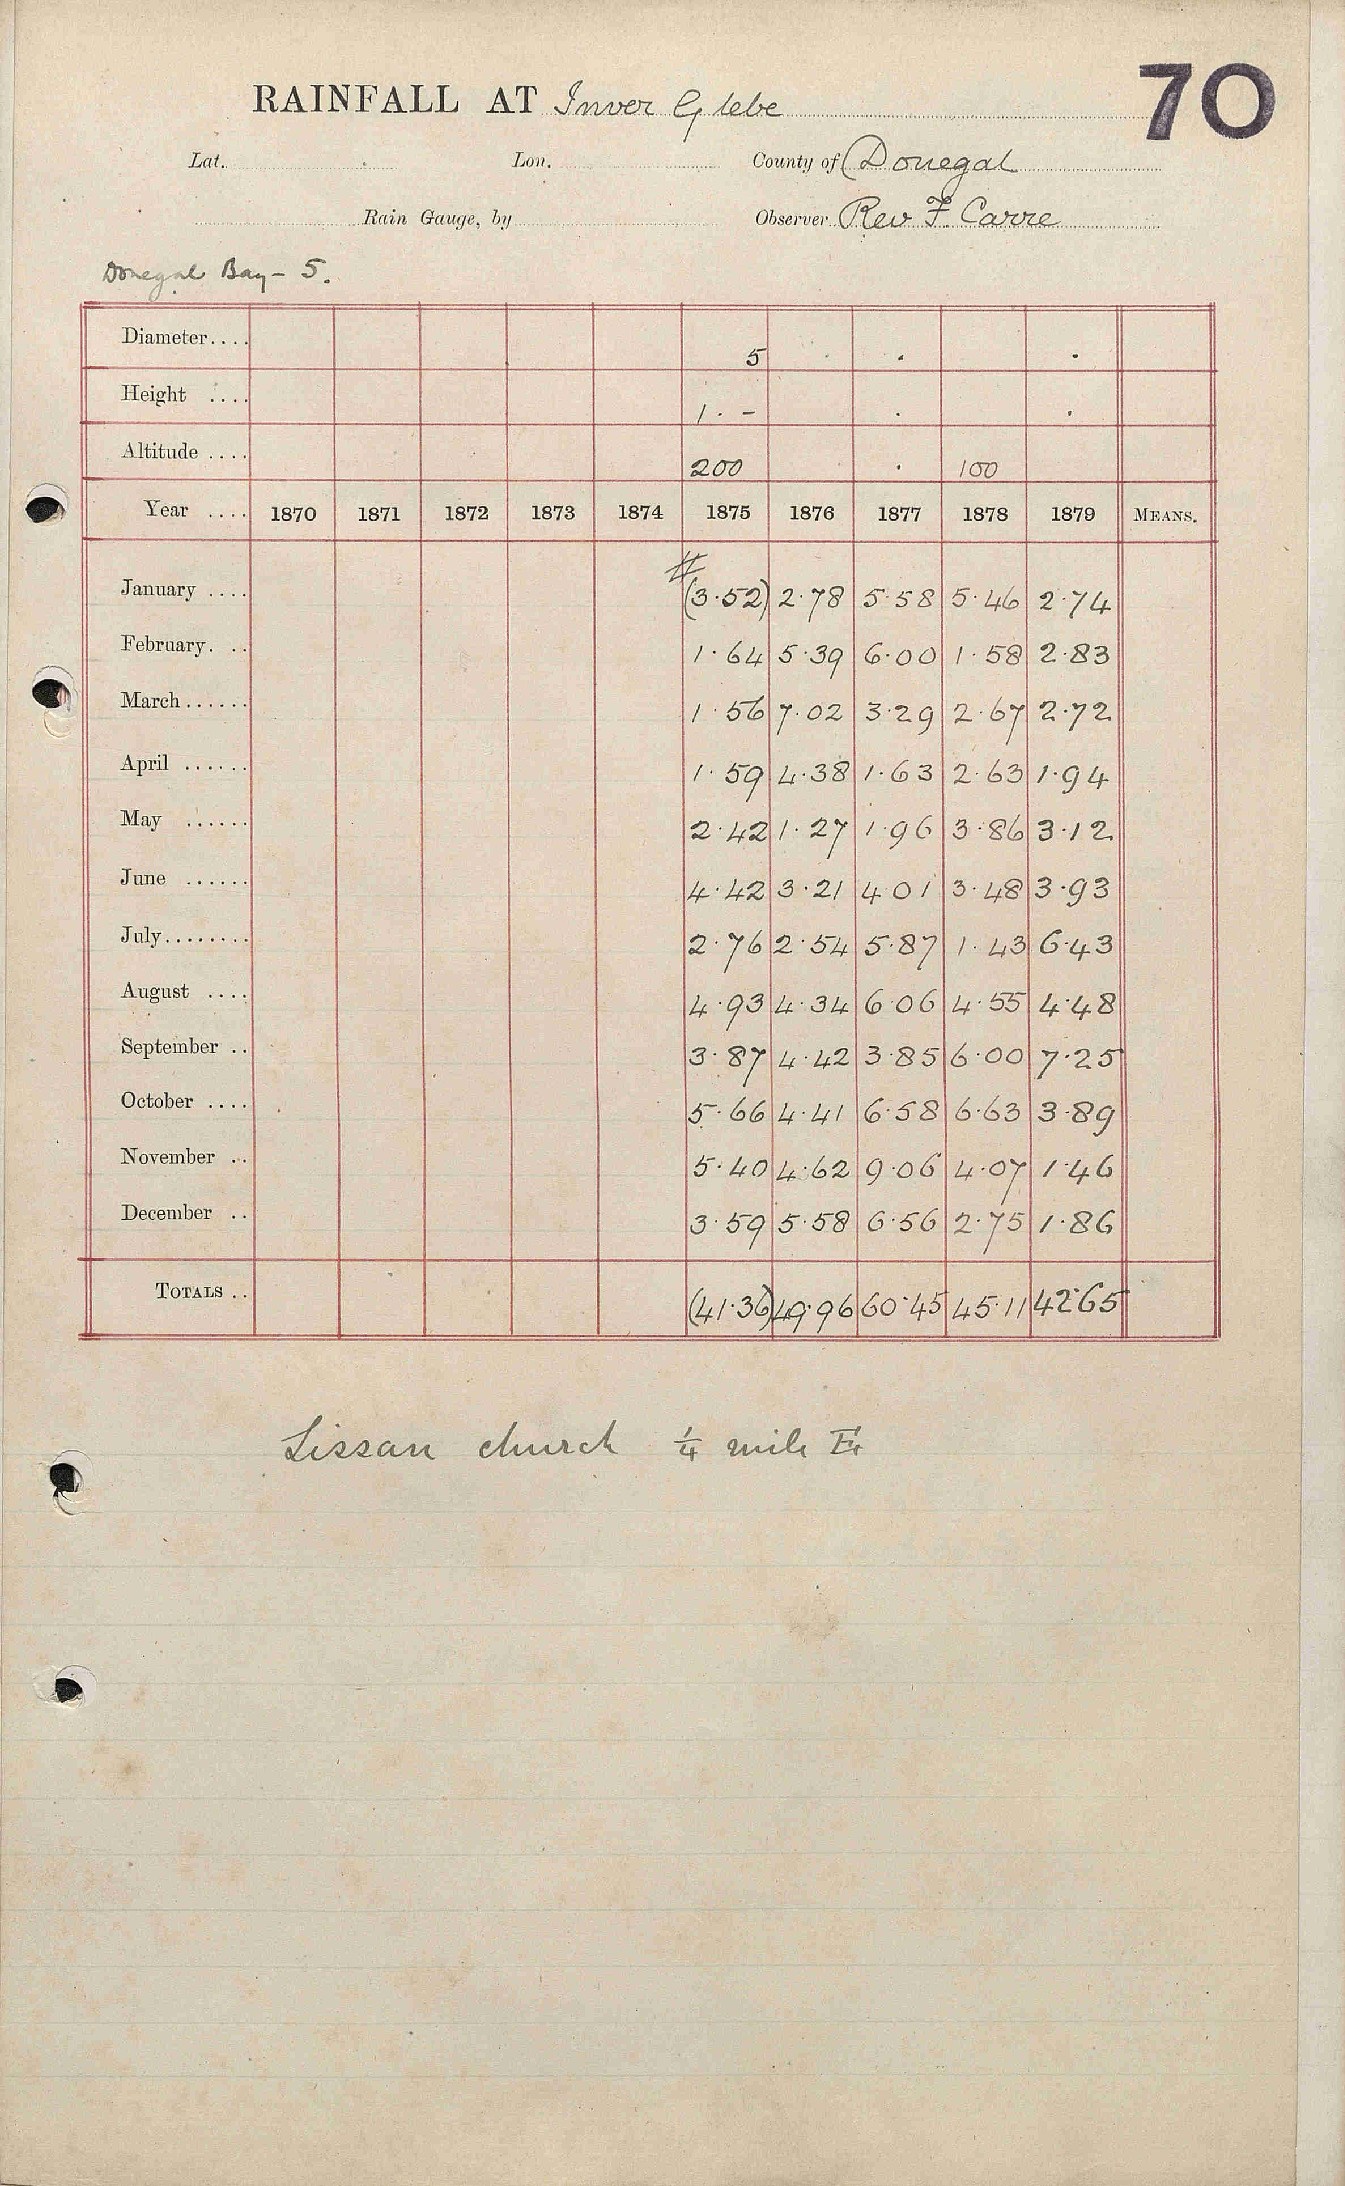 70
RAINFALL AT Inver Glebe
Lat. Lon. County of Donegal
Rain Gauge, by Observer Rev F. Carre
Donegal Bay - 5.
Diameter.... 5
Height .... 1 · -
Altitude .... 200 100
Year .... 1870 1871 1872 1873 1874 1875 1876 1877 1878 1879 MEANS.
#
January .... (3.52) 2.78 5.58 5.46 2.74
February. .. 1.64 5.39 6.00 1.58 2.83
March...... 1.56 7.02 3.29 2.67 2.72
April ...... 1.59 4.38 1.63 2.63 1.94
May ...... 2.42 1.27 1.96 3.86 3.12
June ...... 4.42 3.21 4.01 3.48 3.93
July........ 2.76 2.54 5.87 1.43 6.43
August .... 4.93 4.34 6.06 4.55 4.48
September .. 3.87 4.42 3.85 6.00 7.25
October .... 5.66 4.41 6.58 6.63 3.89
November .. 5.40 4.62 9.06 4.07 1.46
December .. 3.59 5.58 6.56 2.75 1.86
TOTALS .. (41.36) 49.96 60.45 45.11 42.65
Lissan church ¼ mile E